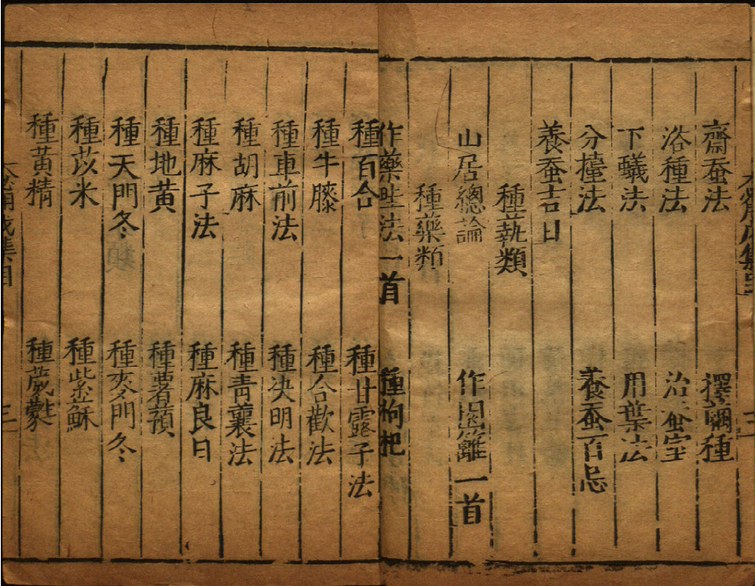 齋蚕法　擇繭種
浴種法　治蚕室
下蟻法　用葉法
分擡法　養蚕百忌
養蚕吉日
種蓺類
山居總論　作園籬一首
種藥類
作藥畦法一首　種枸杷
種百合　種甘露子法
種牛膝　種合歡法
種車前法　種决明法
種胡麻　種青蘘法
種麻子法　種麻良日
種地黄　種薯蕷
種天門冬　種麥門冬
種苡米　種紫蘇
種黄精　種葳蕤